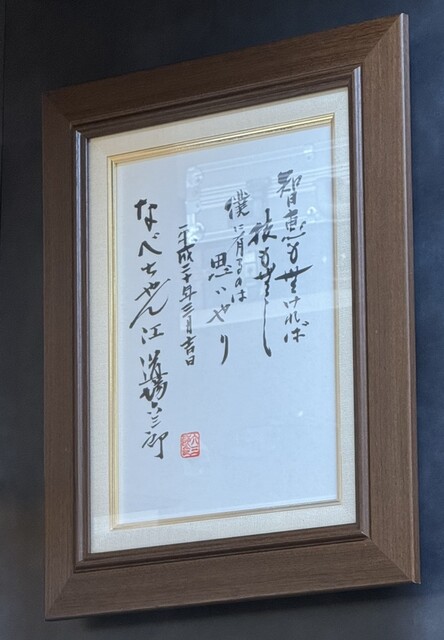 智恵も無ければ
技も無し
僕に有るのは
思いやり
平成二十年三月吉日
なべちゃん江 道場六三郎